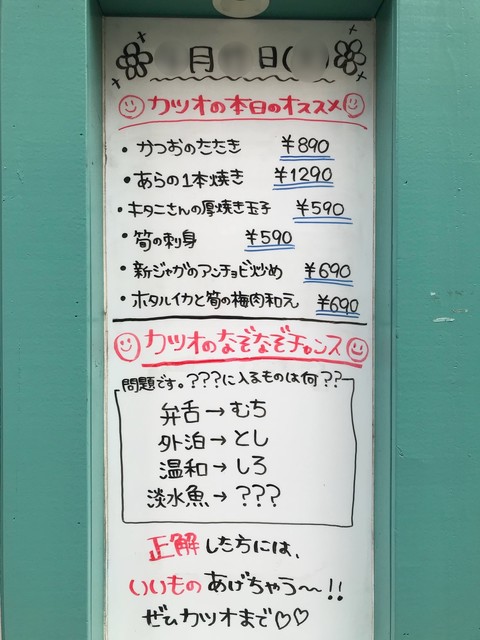 月 日( )
カツオの本日のオススメ
・かつおのたたき ¥890
・あらの1本焼き ¥1290
・キタニさんの厚焼き玉子 ¥590
・筍の刺身 ¥590
・新ジャガのアンチョビ炒め ¥690
・ホタルイカと筍の梅肉和え ¥690
カツオのなぞなぞチャンス
問題です。???に入るものは何??
弁舌→むち
外泊→とし
温和→しろ
淡水魚→???
正解した方には、
いいものあげちゃう〜!!
ぜひカツオまで♡♡